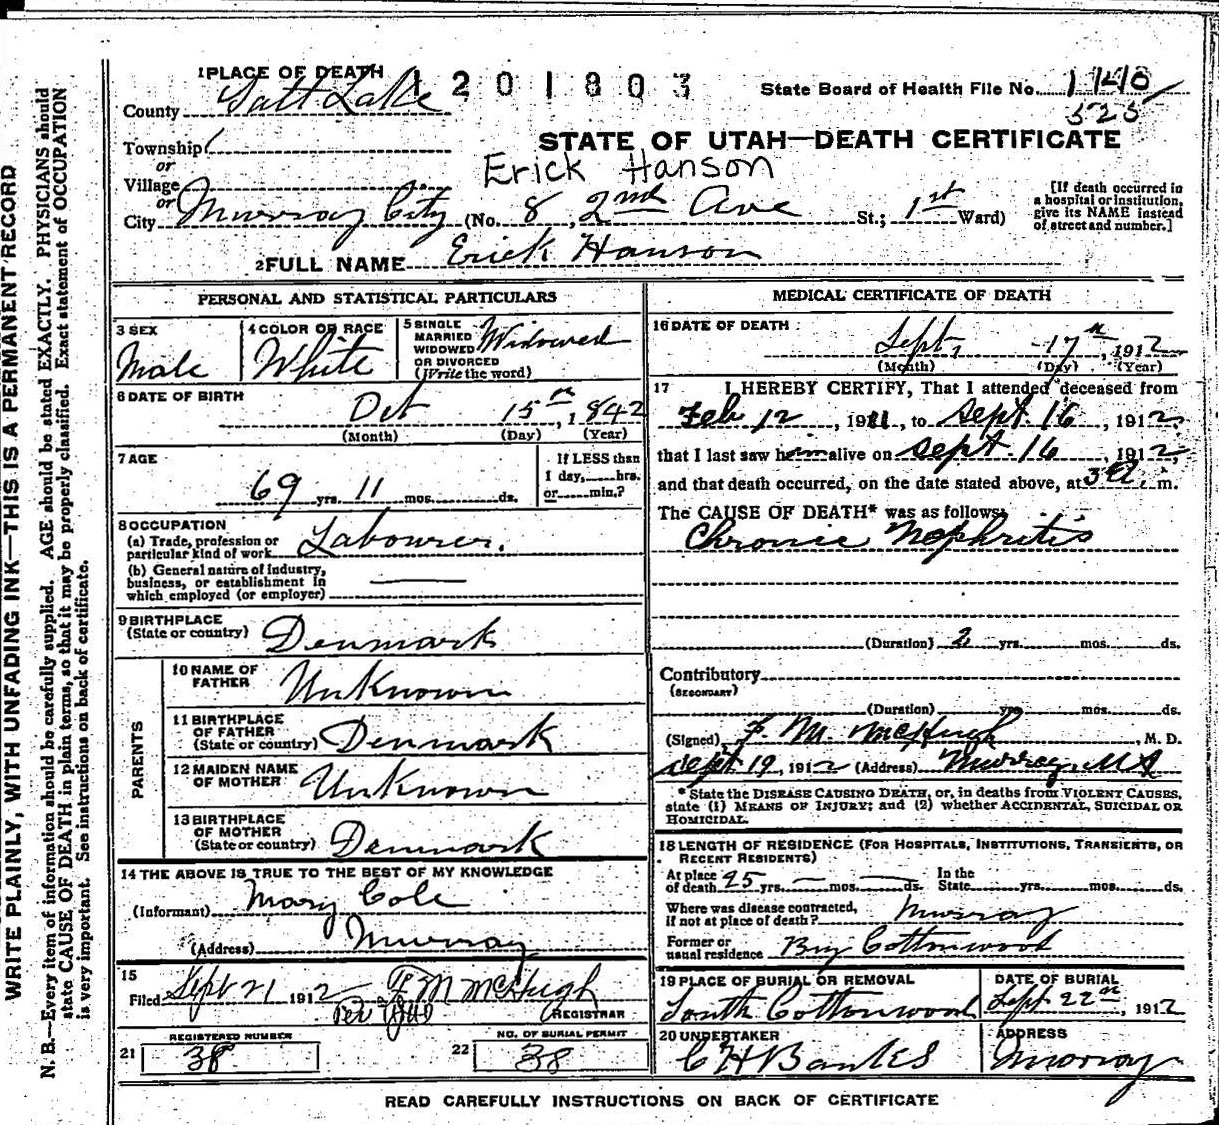 WRITE PLAINLY, WITH UNFADING INK—THIS IS A PERMANENT RECORD
N. B.—Every item of information should be carefully supplied. AGE should be stated EXACTLY. PHYSICIANS should
state CAUSE OF DEATH in plain terms, so that it may be properly classified. Exact statement of OCCUPATION
is very important. See instructions on back of certificate.
1 PLACE OF DEATH 1201803 State Board of Health File No. 1140
County Salt Lake 525
STATE OF UTAH—DEATH CERTIFICATE
Township
or
Village Erick Hanson
or
City Murray City (No. 8, 2nd Ave St.; 1st Ward)
[If death occurred in
a hospital or institution,
give its NAME instead
of street and number.]
2 FULL NAME Erick Hanson
PERSONAL AND STATISTICAL PARTICULARS
3 SEX
Male
4 COLOR OR RACE
White
5 SINGLE
MARRIED
WIDOWED
OR DIVORCED
(Write the word)
Widowed
6 DATE OF BIRTH
Oct 15th, 1842
(Month) (Day) (Year)
7 AGE
69 yrs. 11 mos. ds.
If LESS than
1 day, hrs.
or min.?
8 OCCUPATION
(a) Trade, profession or
particular kind of work Labourer.
(b) General nature of industry,
business, or establishment in
which employed (or employer)
9 BIRTHPLACE
(State or country) Denmark
PARENTS
10 NAME OF
FATHER Unknown
11 BIRTHPLACE
OF FATHER
(State or country) Denmark
12 MAIDEN NAME
OF MOTHER Unknown
13 BIRTHPLACE
OF MOTHER
(State or country) Denmark
14 THE ABOVE IS TRUE TO THE BEST OF MY KNOWLEDGE
(Informant) Mary Cole
(Address) Murray
15
Filed Sept 21 1912 F M McHugh
Per
REGISTRAR
REGISTERED NUMBER
21 38
NO. OF BURIAL PERMIT
22 38
MEDICAL CERTIFICATE OF DEATH
16 DATE OF DEATH
Sept, 17th, 1912
(Month) (Day) (Year)
17 I HEREBY CERTIFY, That I attended deceased from
Feb 12, 1911, to Sept. 16, 1912,
that I last saw him alive on Sept. 16, 1912,
and that death occurred, on the date stated above, at 3 a. m.
The CAUSE OF DEATH* was as follows:
Chronic Nephritis
(Duration) 2 yrs. mos. ds.
Contributory
(SECONDARY)
(Duration) yrs. mos. ds.
(Signed) F. M. McHugh, M. D.
Sept. 19, 1912 (Address) Murray
* State the DISEASE CAUSING DEATH, or, in deaths from VIOLENT CAUSES,
state (1) MEANS OF INJURY; and (2) whether ACCIDENTAL, SUICIDAL OR
HOMICIDAL.
18 LENGTH OF RESIDENCE (FOR HOSPITALS, INSTITUTIONS, TRANSIENTS, OR
RECENT RESIDENTS)
At place In the
of death 25 yrs. — mos. — ds. State yrs. mos. ds.
Where was disease contracted,
if not at place of death? Murray
Former or
usual residence Big Cottonwood
19 PLACE OF BURIAL OR REMOVAL
South Cottonwood
DATE OF BURIAL
Sept. 22nd, 1912
20 UNDERTAKER
C H Banks
ADDRESS
Murray
READ CAREFULLY INSTRUCTIONS ON BACK OF CERTIFICATE